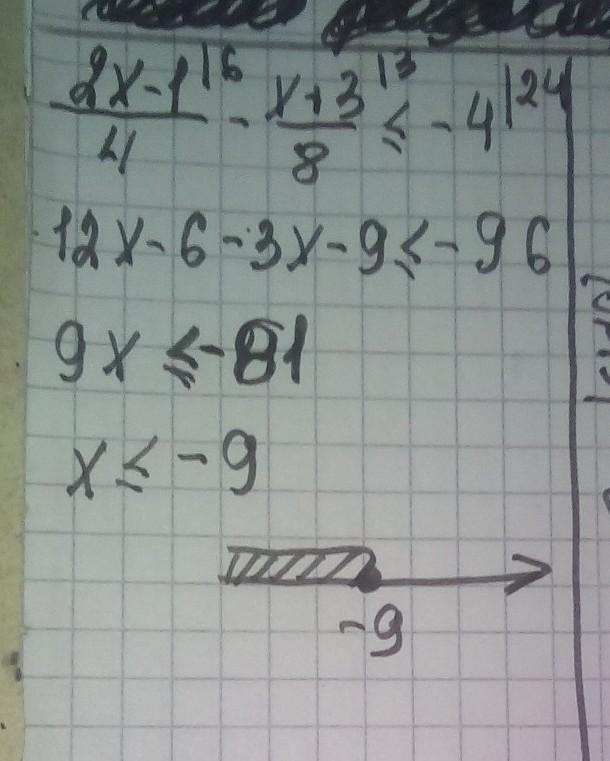 (2x-1)/4 |6 - (x+3)/8 |3 ≤ -4 |24
12x-6-3x-9≤-96
9x ≤-81
x ≤ -9
-9